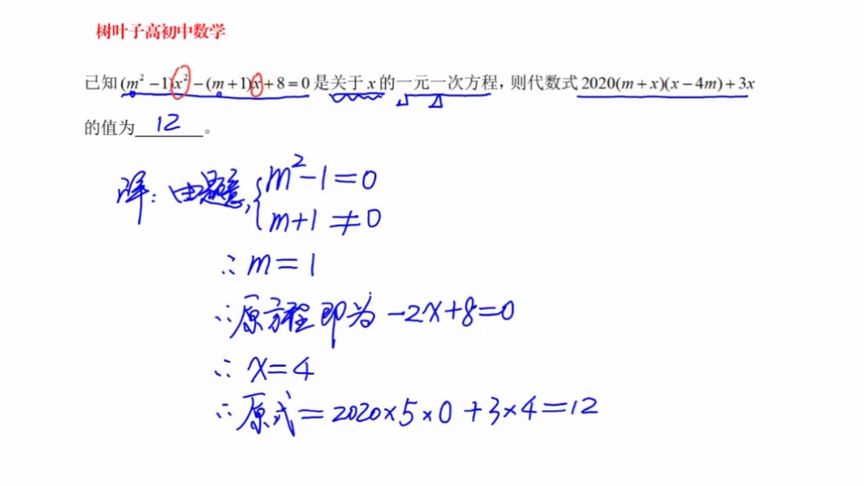 树叶子高初中数学
已知(m²-1)x²-(m+1)x+8=0是关于x的一元一次方程，则代数式2020(m+x)(x-4m)+3x
的值为 12 。
解：由题意，{m²-1=0
m+1≠0
∴m=1
∴原方程即为-2x+8=0
∴x=4
∴原式=2020×5×0+3×4=12